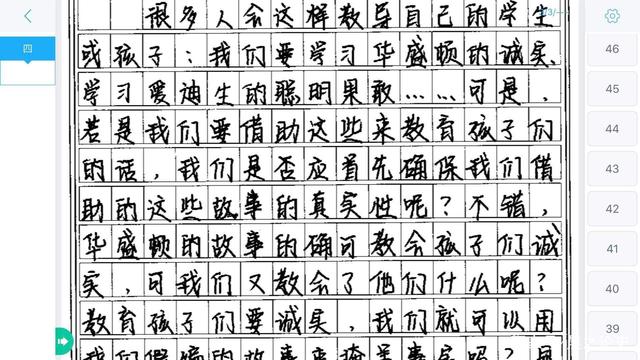 很多人会这样教导自己的学生
或孩子：我们要学习华盛顿的诚实、
学习爱迪生的聪明果敢……可是，
若是我们要借助这些来教育孩子们
的话，我们是否应首先确保我们借
助的这些故事的真实性呢？不错，
华盛顿的故事的确可教会孩子们诚
实，可我们又教会了他们什么呢？
教育孩子们要诚实，我们就可以用
四
46
45
44
43
42
41
40
39